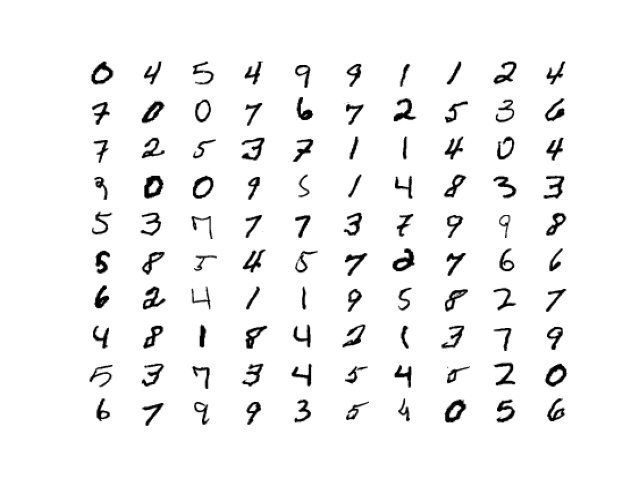 0 4 5 4 9 9 1 1 2 4
7 0 0 7 6 7 2 5 3 6
7 2 5 3 7 1 1 4 0 4
9 0 0 9 5 1 4 8 3 3
5 3 7 7 7 3 7 9 9 8
5 8 5 4 5 7 2 7 6 6
6 2 4 1 1 9 5 8 2 7
4 8 1 8 4 2 1 3 7 9
5 3 7 3 4 5 4 5 2 0
6 7 9 9 3 5 4 0 5 6